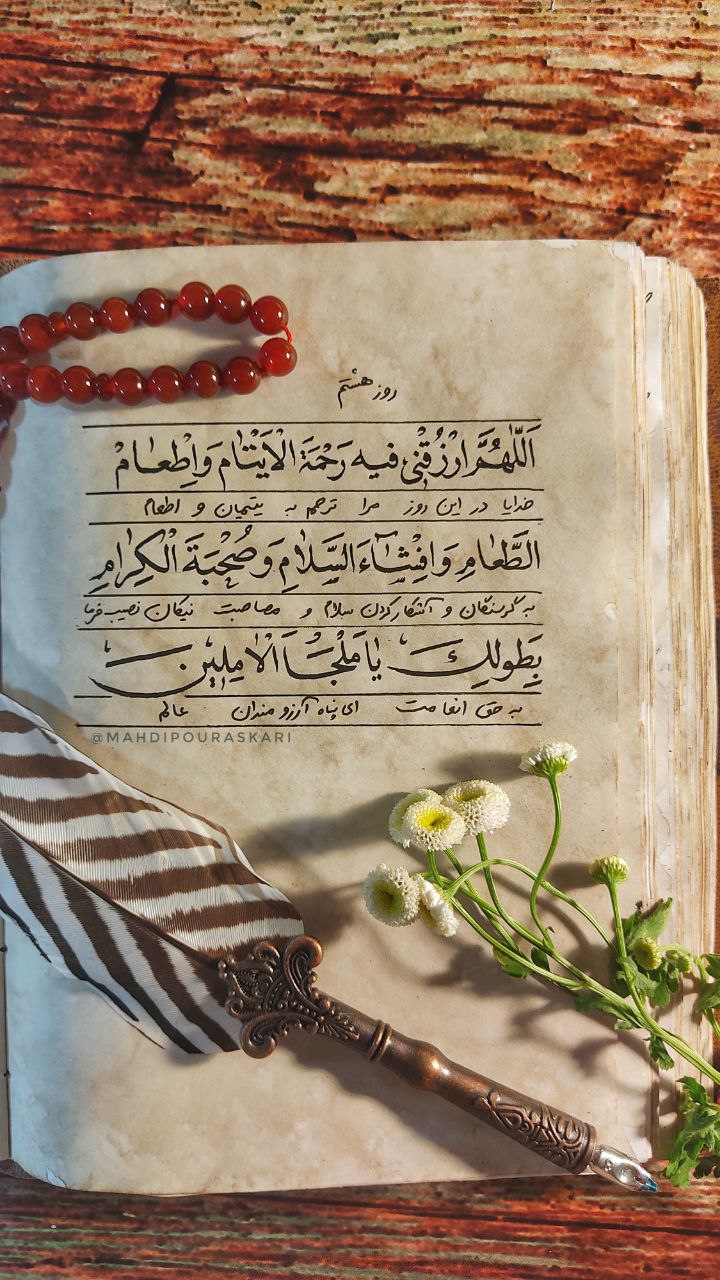 روز هشتم
اَللّهُمَّ ارْزُقْنی فیهِ رَحْمَةَ الْاَیْتامِ وَاِطْعامْ
خدایا در این روز مرا ترحم به یتیمان و اطعام
الطَّعامِ وَاِفْشاءَ السَّلامِ وَصُحْبَةَ الْکِرامِ
به گرسنگان و آشکار کردن سلام و مصاحبت نیکان نصیب فرما
بِطَولِکَ یا مَلْجَاَ الْامِلینَ
به حق انعامت ای پناه آرزومندان عالم
@MAHDIPOURASKARI